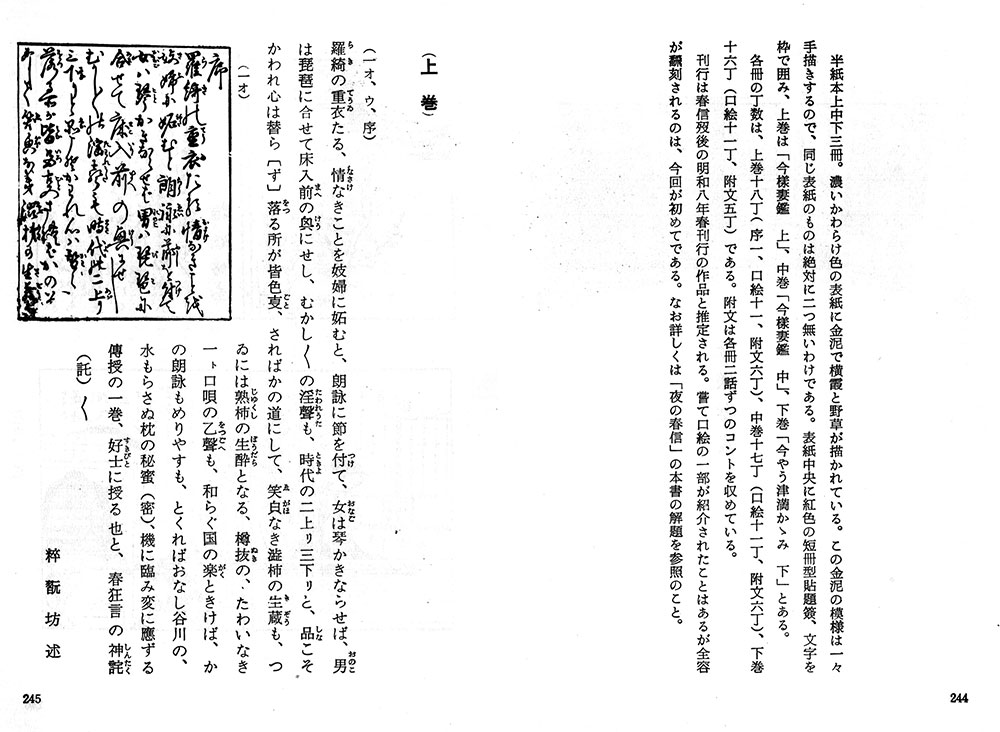 半紙本上中下三冊。濃いかわらけ色の表紙に金泥で横霞と野草が描かれている。この金泥の模様は一々
手描きするので、同じ表紙のものは絶対に二つ無いわけである。表紙中央に紅色の短冊型貼題簽、文字を
枠で囲み、上巻は「今様妻鑑　上」、中巻「今様妻鑑　中」、下巻「今やう津满かゝみ　下」とある。
各冊の丁数は、上巻十八丁（序一、口絵十一、附文六丁）、中巻十七丁（口絵十一丁、附文六丁）、下巻
十六丁（口絵十一丁、附文五丁）である。附文は各冊二話ずつのコントを収めている。
刊行は春信歿後の明和八年春刊行の作品と推定される。嘗て口絵の一部が紹介されたことはあるが全容
が飜刻されるのは、今回が初めてである。なお詳しくは「夜の春信」の本書の解題を参照のこと。
244
（上　巻）
（一オ、ウ、序）
羅綺の重衣たる、情なきことを妓婦に妬むと、朗詠に節を付て、女は琴かきならせば、男
は琵琶に合せて床入前の奥にせし、むかし〱の淫聲も、時代の二上り三下リと、品こそ
かわれ心は替ら［ず］落る所が皆色叓、さればかの道にして、笑㒵なき澁柿の生蔵も、つ
（一オ）
序
ゐには熟柿の生酔となる、樽抜の、たわいなき
一ト口唄の乙聲も、和らぐ国の楽ときけば、か
の朗詠もめりやすも、とくればおなし谷川の、
水もらさぬ枕の秘蜜（密）、機に臨み変に應ずる
傳授の一巻、好士に授る也と、春狂言の神詫
（託）〱
粋翫坊述
245